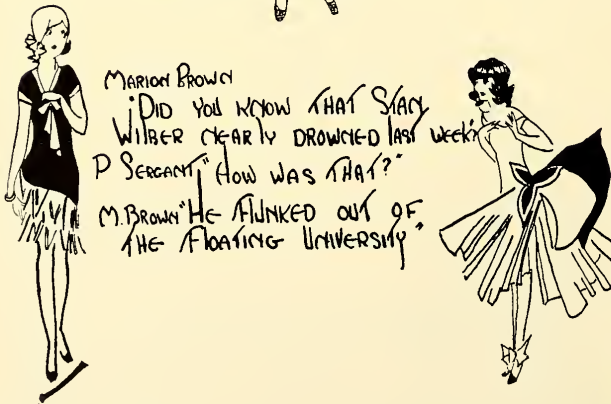 MARION BROWN
"DID YOU KNOW THAT STAN
WILBER NEARLY DROWNED LAST WEEK?"
P SERGANT, "HOW WAS THAT?"
M. BROWN "HE FLUNKED OUT OF
THE FLOATING UNIVERSITY"